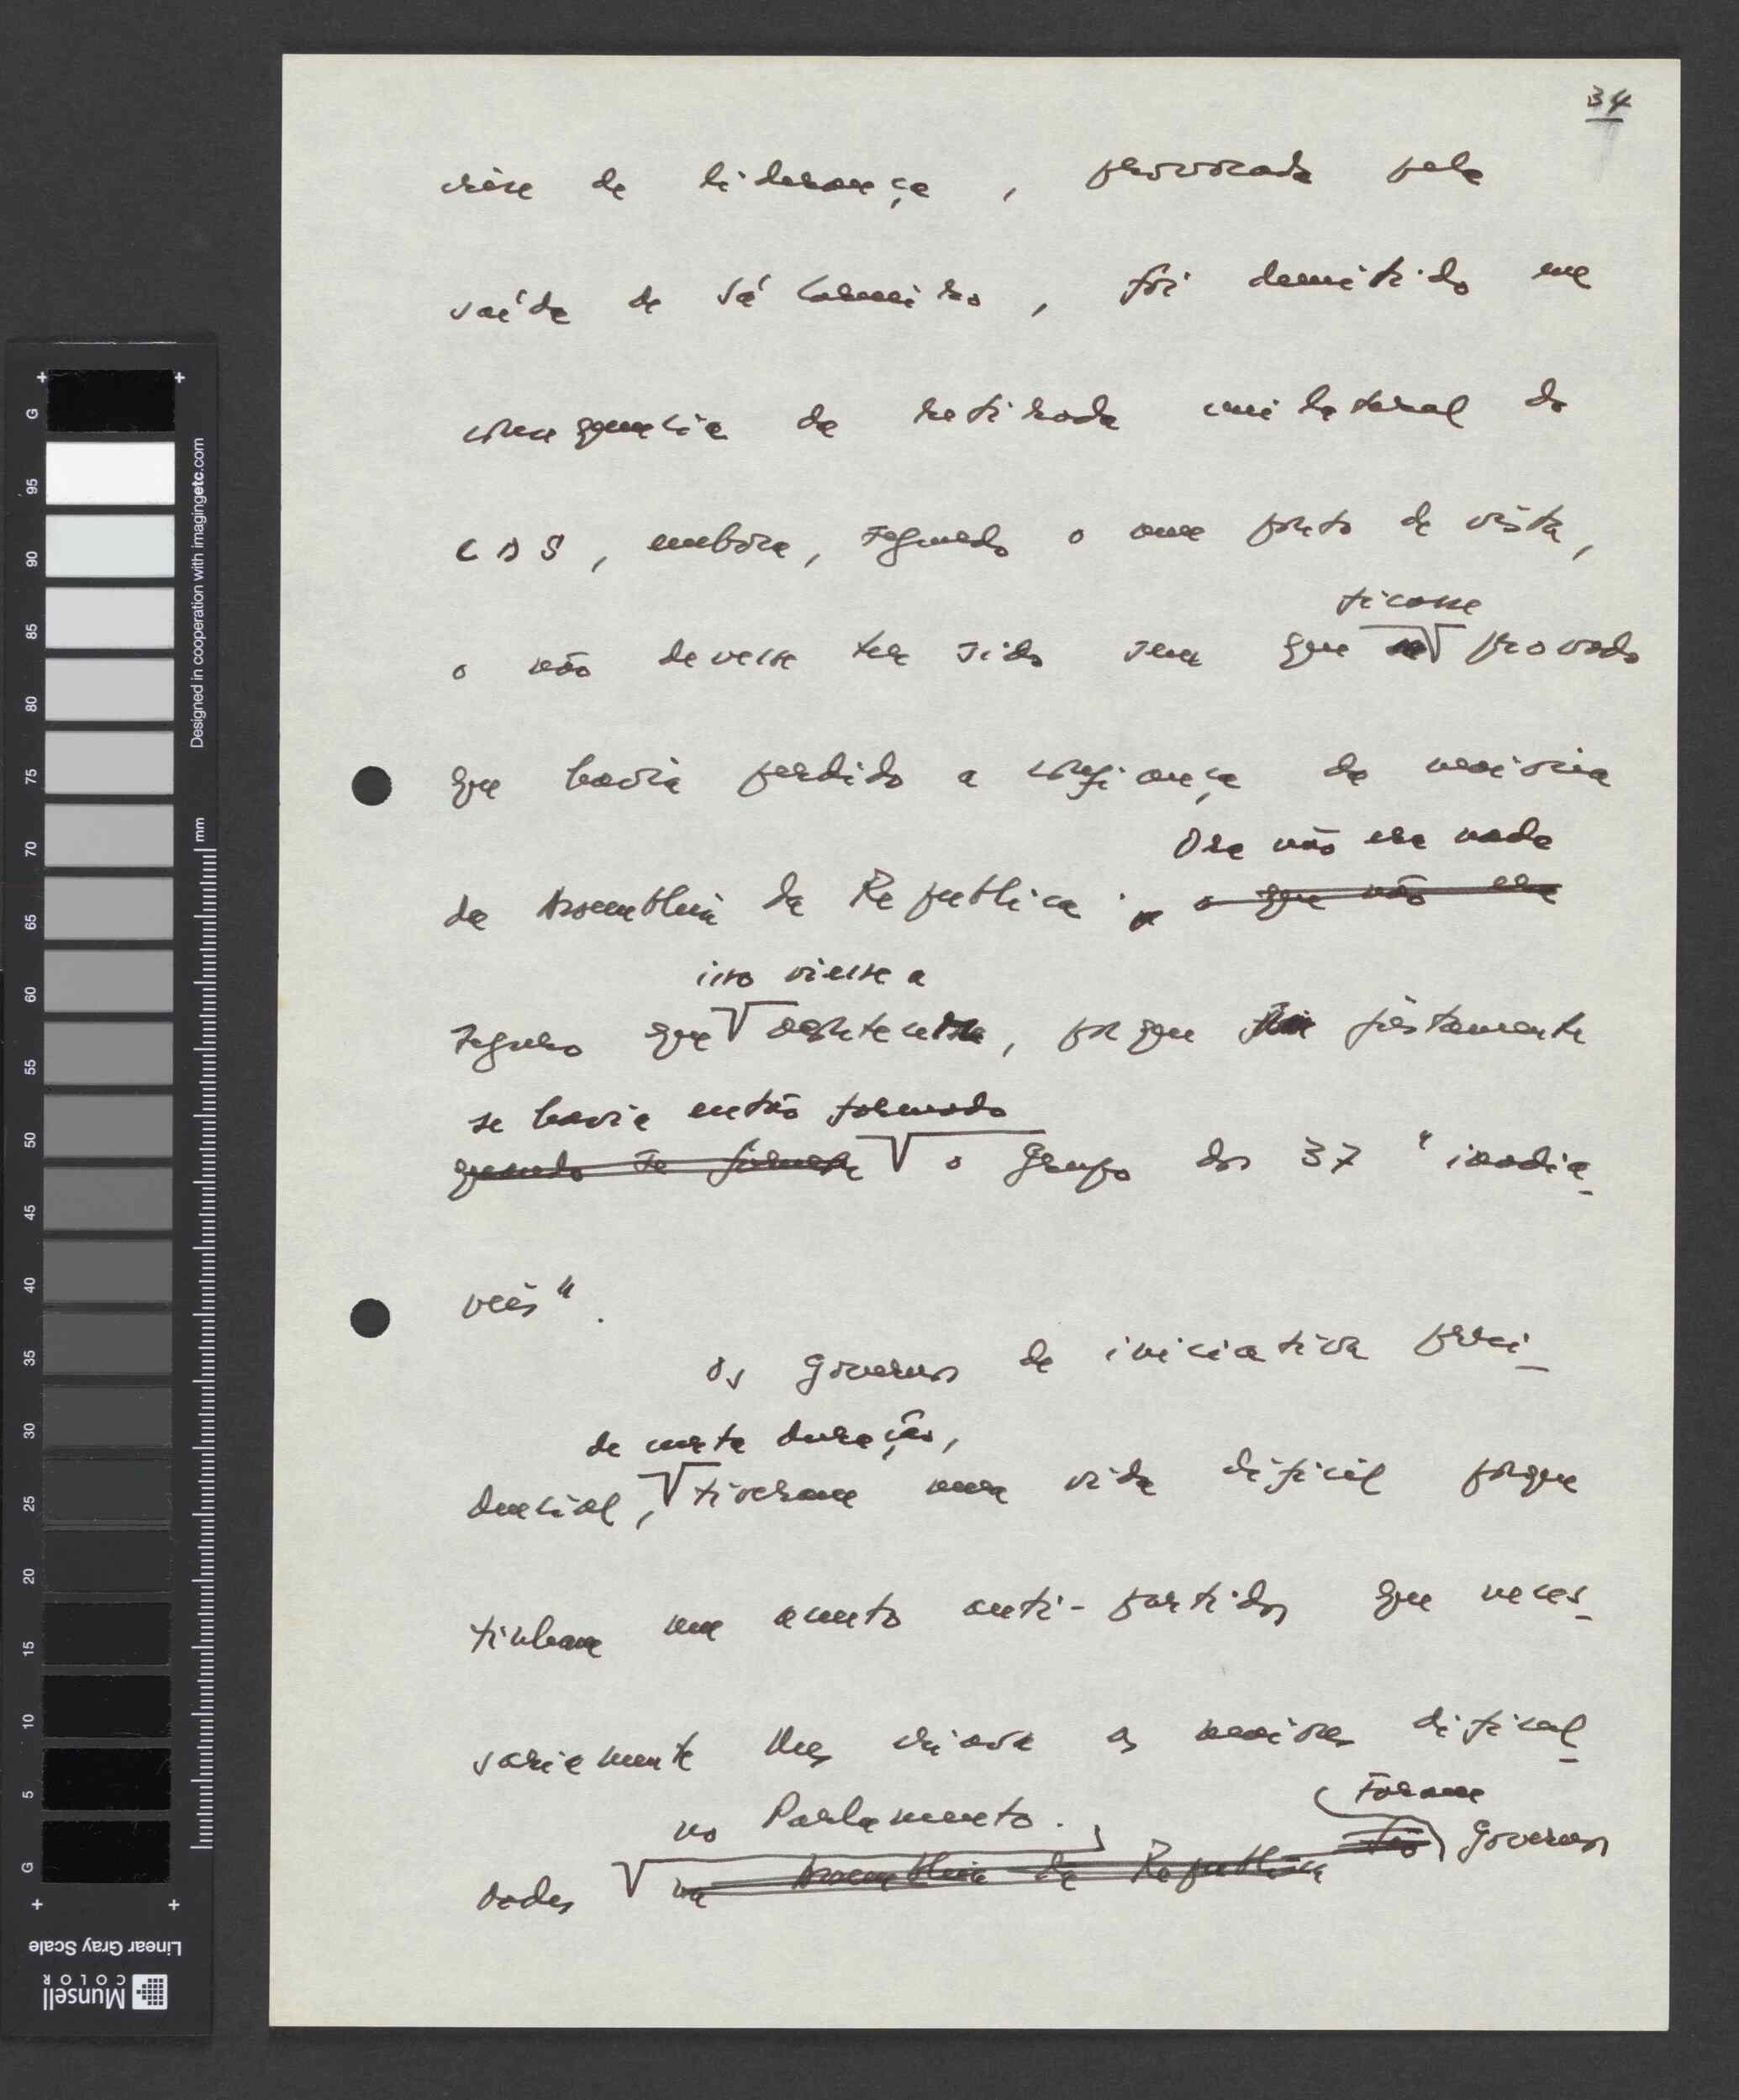 34
crise de liderança, provocada pela
saída de Sá Carneiro, foi demitido na
consequência da retirada unilateral do
CDS, embora, segundo o meu ponto de vista,
ficasse
o não devesse ter sido sem que provado
que havia perdido a confiança da maioria
Ora não era nada
da Assembleia da República. o que não era
isso viesse a
seguro que acontecer, porque justamente
se havia então formado
quando se formara o Grupo dos 37 "inadiá-
veis".
Os governos de iniciativa presi-
de curta duração,
dencial, tiveram uma vida difícil porque
tinham um acento anti-partidos que neces-
sariamente lhes criava as maiores dificul-
no Parlamento. Foram
dades na Assembleia da República São governos
G 95 90 85 80 75 70 65 60 55 50 45 40 35 30 25 20 15 10 5 G
Designed in cooperation with imagingetc.com
mm
Linear Gray Scale
Munsell
COLOR